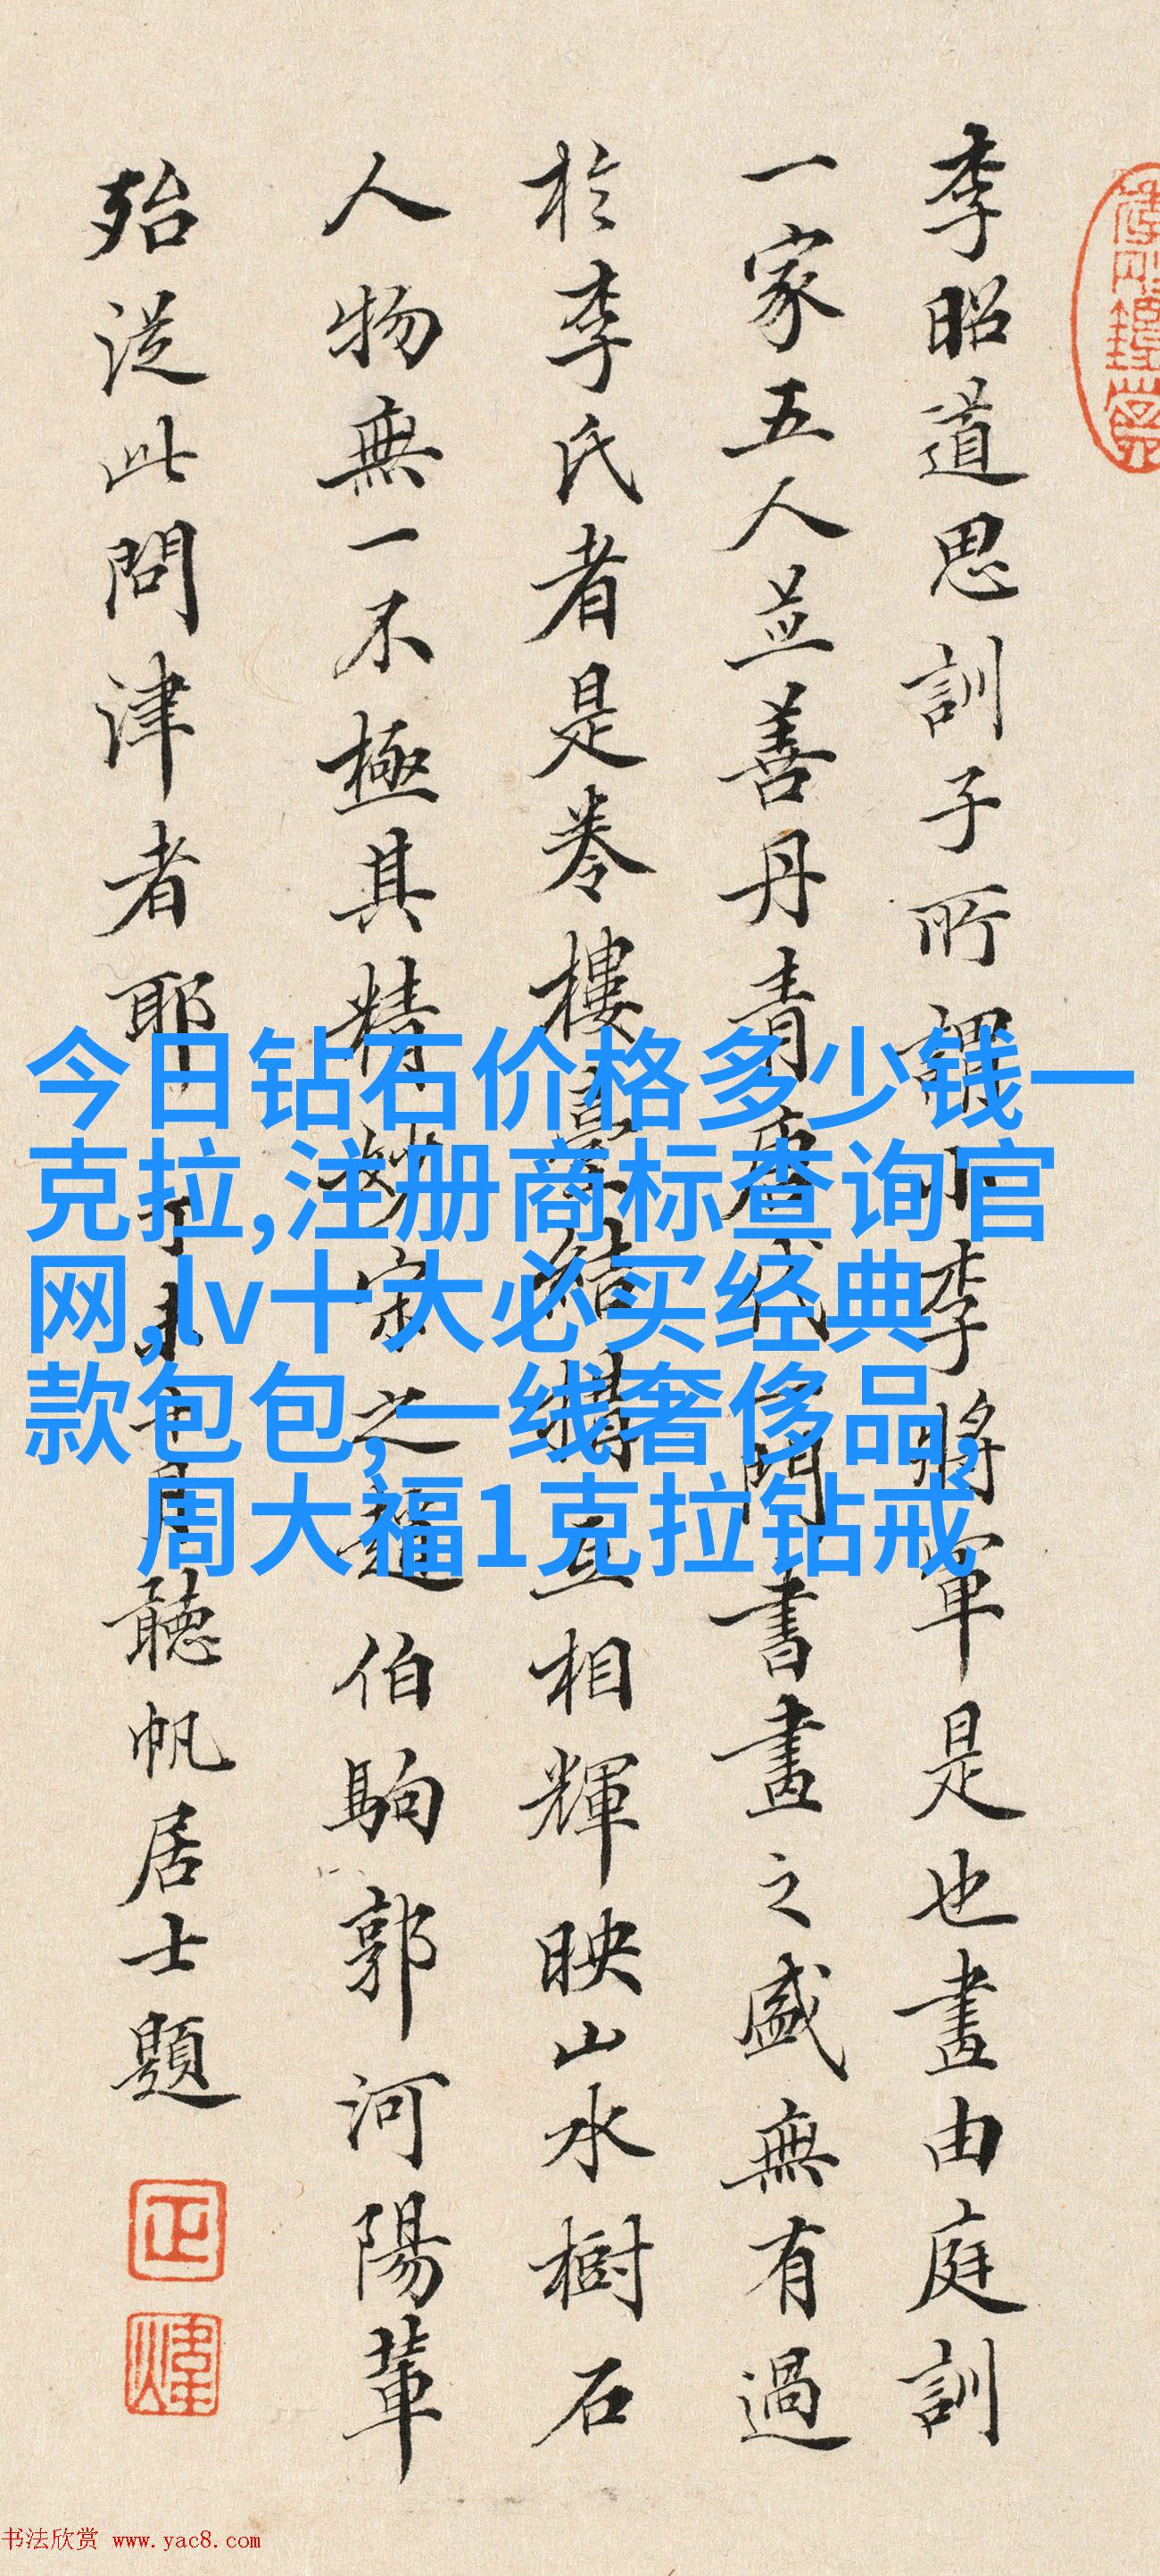 李昭道思訓子所謂小李將軍是也畫由庭訓
一家五人並善丹青唐代一門書畫之盛無有過
於李氏者是卷樓臺結構互相輝映山水樹石
人物無一不極其精妙宋之趙伯駒郭河陽輩
殆從此問津者耶
聽帆居士題
今日钻石价格多少钱一
克拉,注册商标查询官
网,lv十大必买经典
款包包,一线奢侈品,
周大福1克拉钻戒
书法欣赏 www.yac8.com